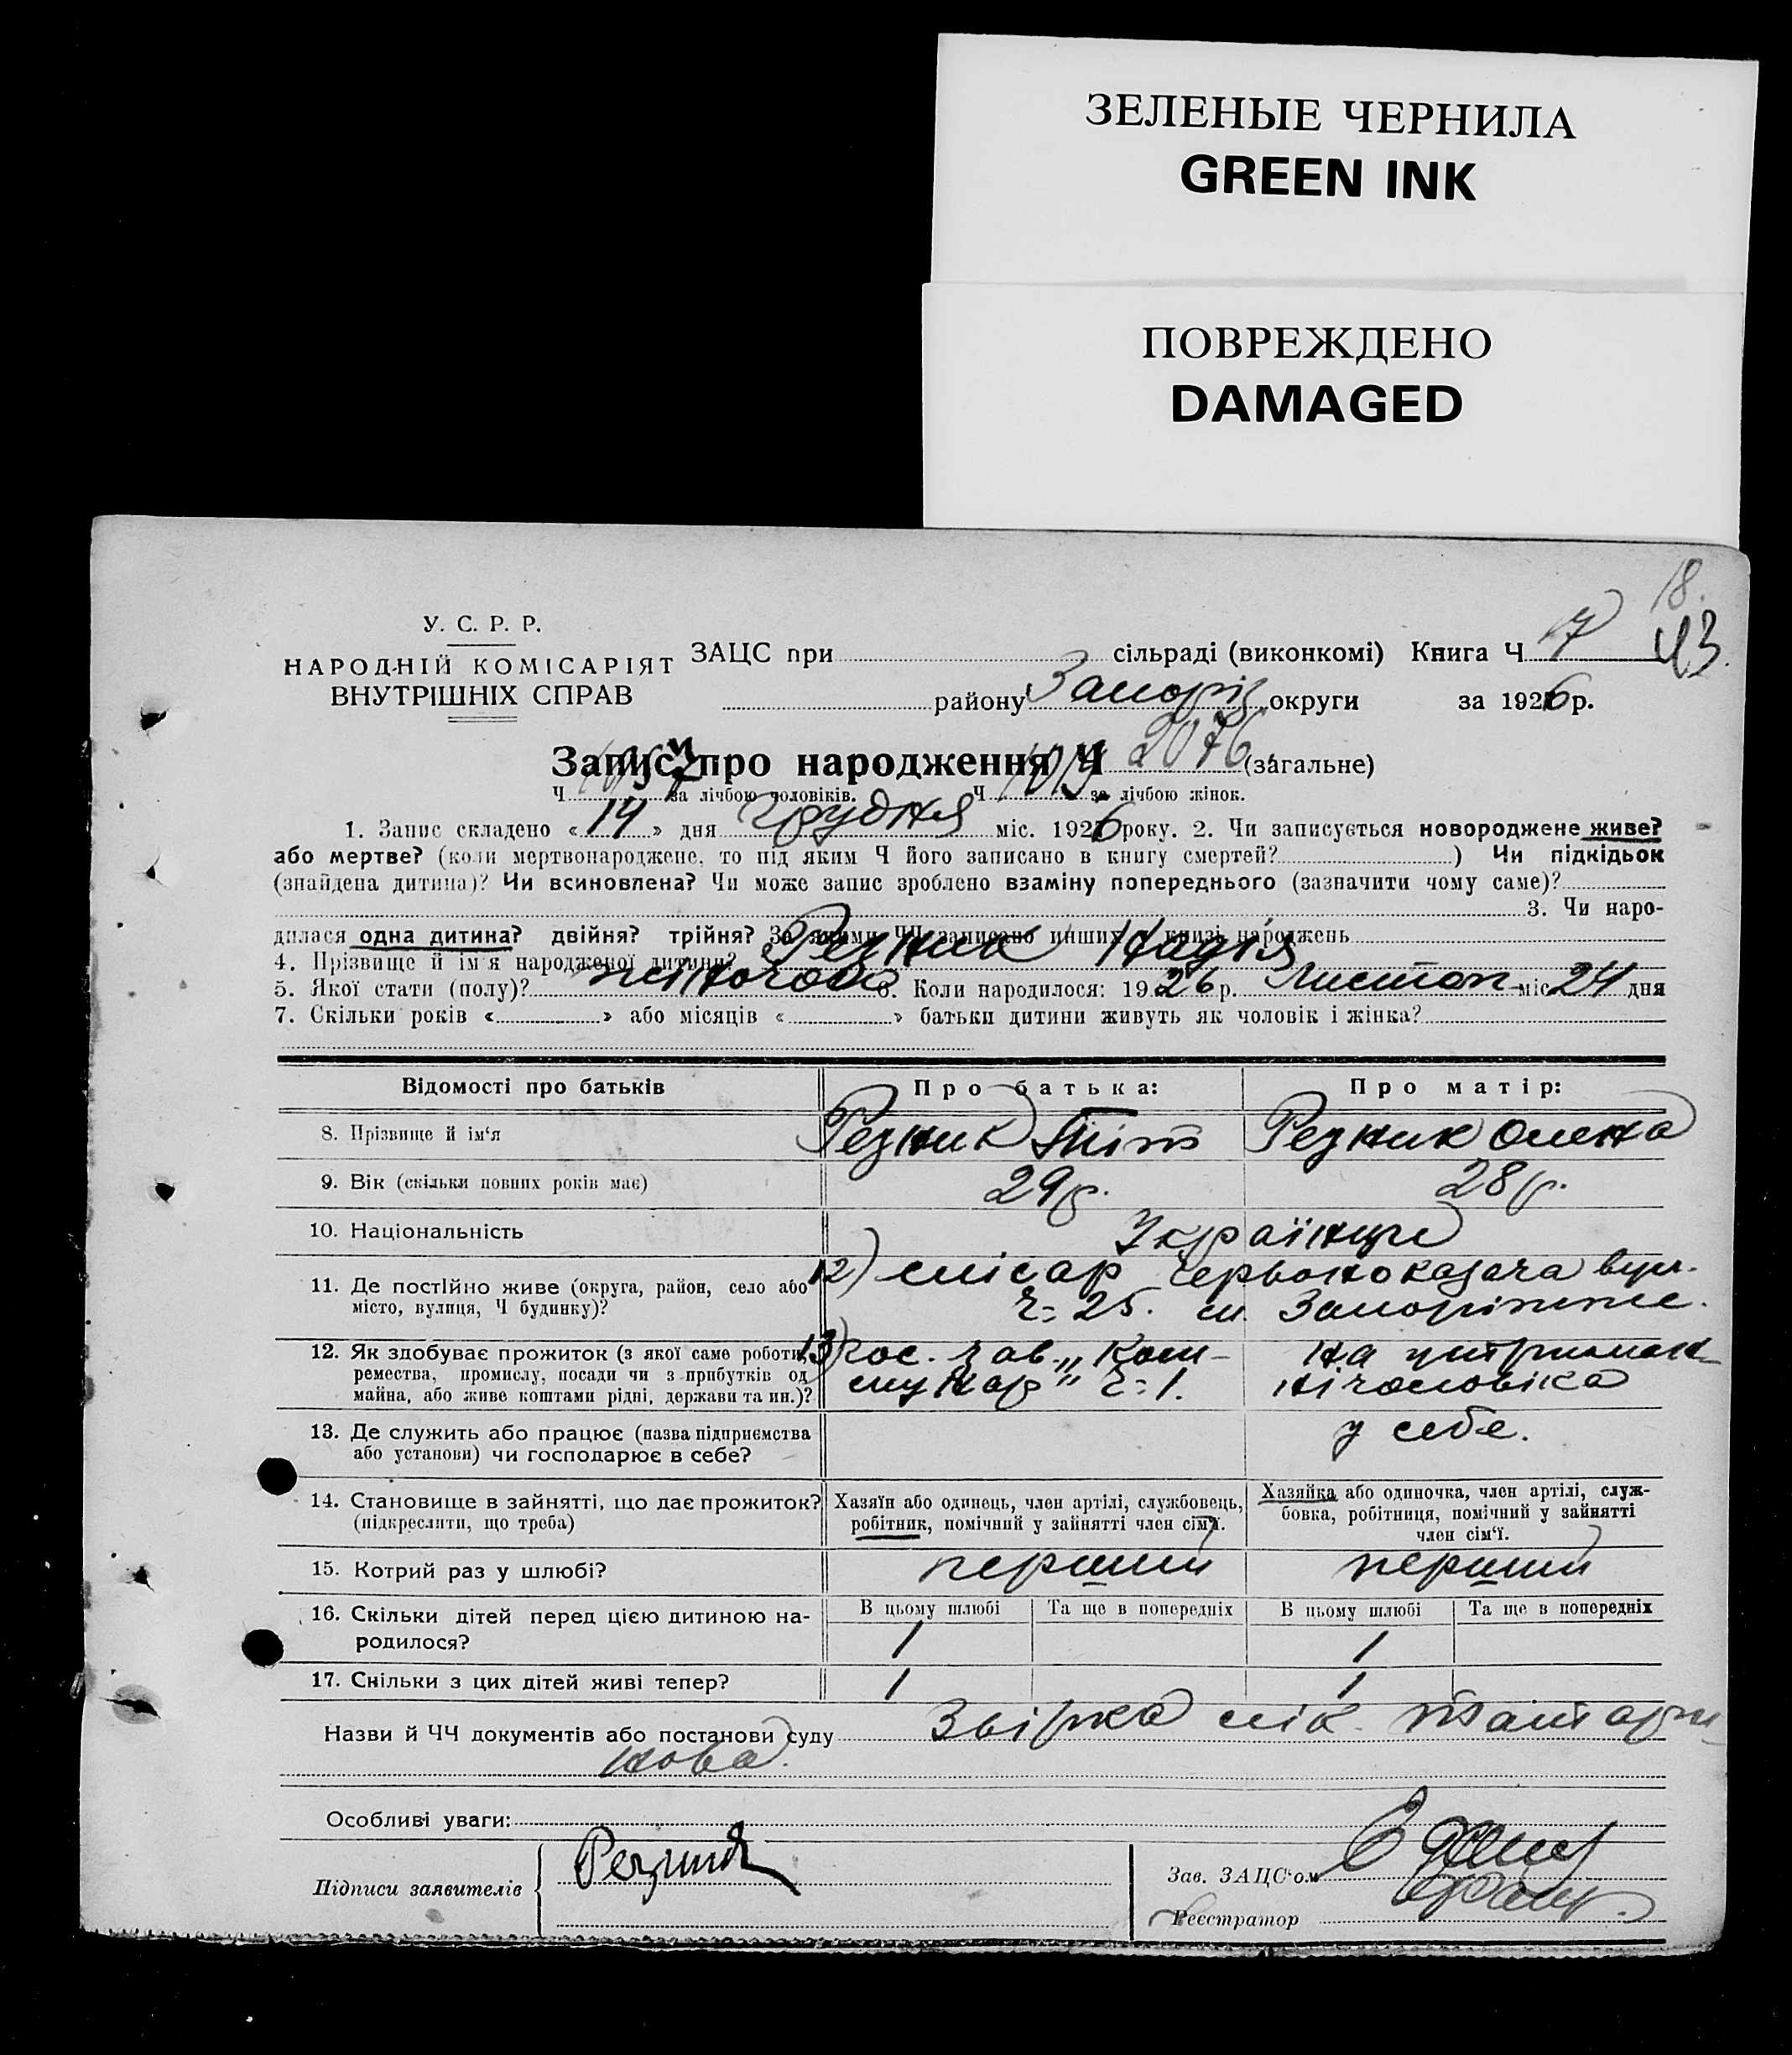 ЗЕЛЕНЫЕ ЧЕРНИЛА
GREEN INK
ПОВРЕЖДЕНО
DAMAGED
18.
43
У. С. Р. Р.
НАРОДНІЙ КОМІСАРІЯТ
ВНУТРІШНІХ СПРАВ
ЗАЦС при сільраді (виконкомі) Книга Ч 7
району Запоріз. округи за 1926 р.
Запис про народження Ч 2076 (загальне)
Ч за лічбою чоловіків. Ч за лічбою жінок.
1. Запис складено «14» дня грудня міс. 1926 року. 2. Чи записується новороджене живе?
або мертве? (коли мертвонароджене, то під яким Ч його записано в книгу смертей? ) Чи підкідьок
(знайдена дитина)? Чи всиновлена? Чи може запис зроблено взаміну попереднього (зазначити чому саме)?
3. Чи наро-
дилася одна дитина? двійня? трійня? За якими ЧЧ записано инших в книзі народжень
4. Прізвище й ім'я народженої дитини? Резник Надія
5. Якої стати (полу)? жіночова 6. Коли народилося: 1926 р. Листоп. міс. 24 дня
7. Скільки років « » або місяців « » батьки дитини живуть як чоловік і жінка?
Відомості про батьків Про батька: Про матір:
8. Прізвище й ім'я Резник Тіт Резник Олена
9. Вік (скільки повних років має) 29 р. 28 р.
10. Національність Українци
11. Де постійно живе (округа, район, село або
місто, вулиця, Ч будинку)?
12) слісар Червоноказача вул.
ч= 25. м. Запоріжже.
12. Як здобуває прожиток (з якої саме роботи,
ремества, промислу, посади чи з прибутків од
майна, або живе коштами рідні, держави та ин.)?
13) Гос. зав. „Ком-
мунар" ч=1.
на утриман-
ні чоловіка
13. Де служить або працює (назва підприємства
або установи) чи господарює в себе?
у себе.
14. Становище в зайнятті, що дає прожиток?
(підкреслити, що треба)
Хазяїн або одинець, член артілі, службовець,
робітник, помічний у зайнятті член сім'ї.
Хазяйка або одиночка, член артілі, служ-
бовка, робітниця, помічний у зайнятті
член сім'ї.
15. Котрий раз у шлюбі? перший перший
16. Скільки дітей перед цією дитиною на-
родилося?
В цьому шлюбі Та ще в попередніх В цьому шлюбі Та ще в попередніх
1 1
17. Скільки з цих дітей живі тепер? 1 1
Назви й ЧЧ документів або постанови суду Звірка лік.
Особливі уваги:
Підписи заявителів Резник
Зав. ЗАЦС'ом
Реєстратор